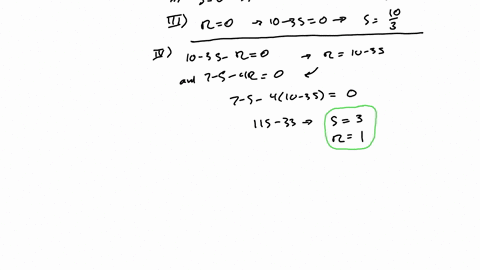 III) R=0 → 10-3S=0 → S= 10/3
IV) 10-3S-R=0 → R=10-3S
and 7-S-4R=0 ↙
7-S-4(10-3S)=0
11S-33 → S=3
R=1